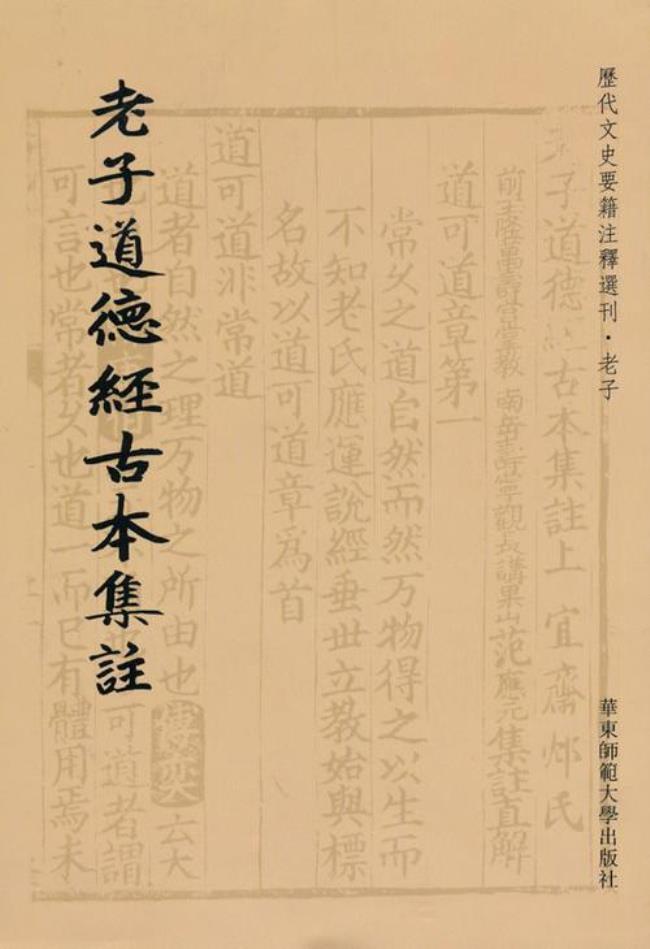 歷代文史要籍注釋選刊·老子
老子道德經古本集註
華東師範大學出版社
子道德經古本集註上 宜齋
范應元集註直解
道可道章第一
常久之道自然而然万物得之以生而
不知老氏應運說經垂世立教始與標
名故以道可道章爲首
道可道非常道
道者自然之理万物之所由也 云大
可道者謂
可言也常者久也道一而已有體用焉未